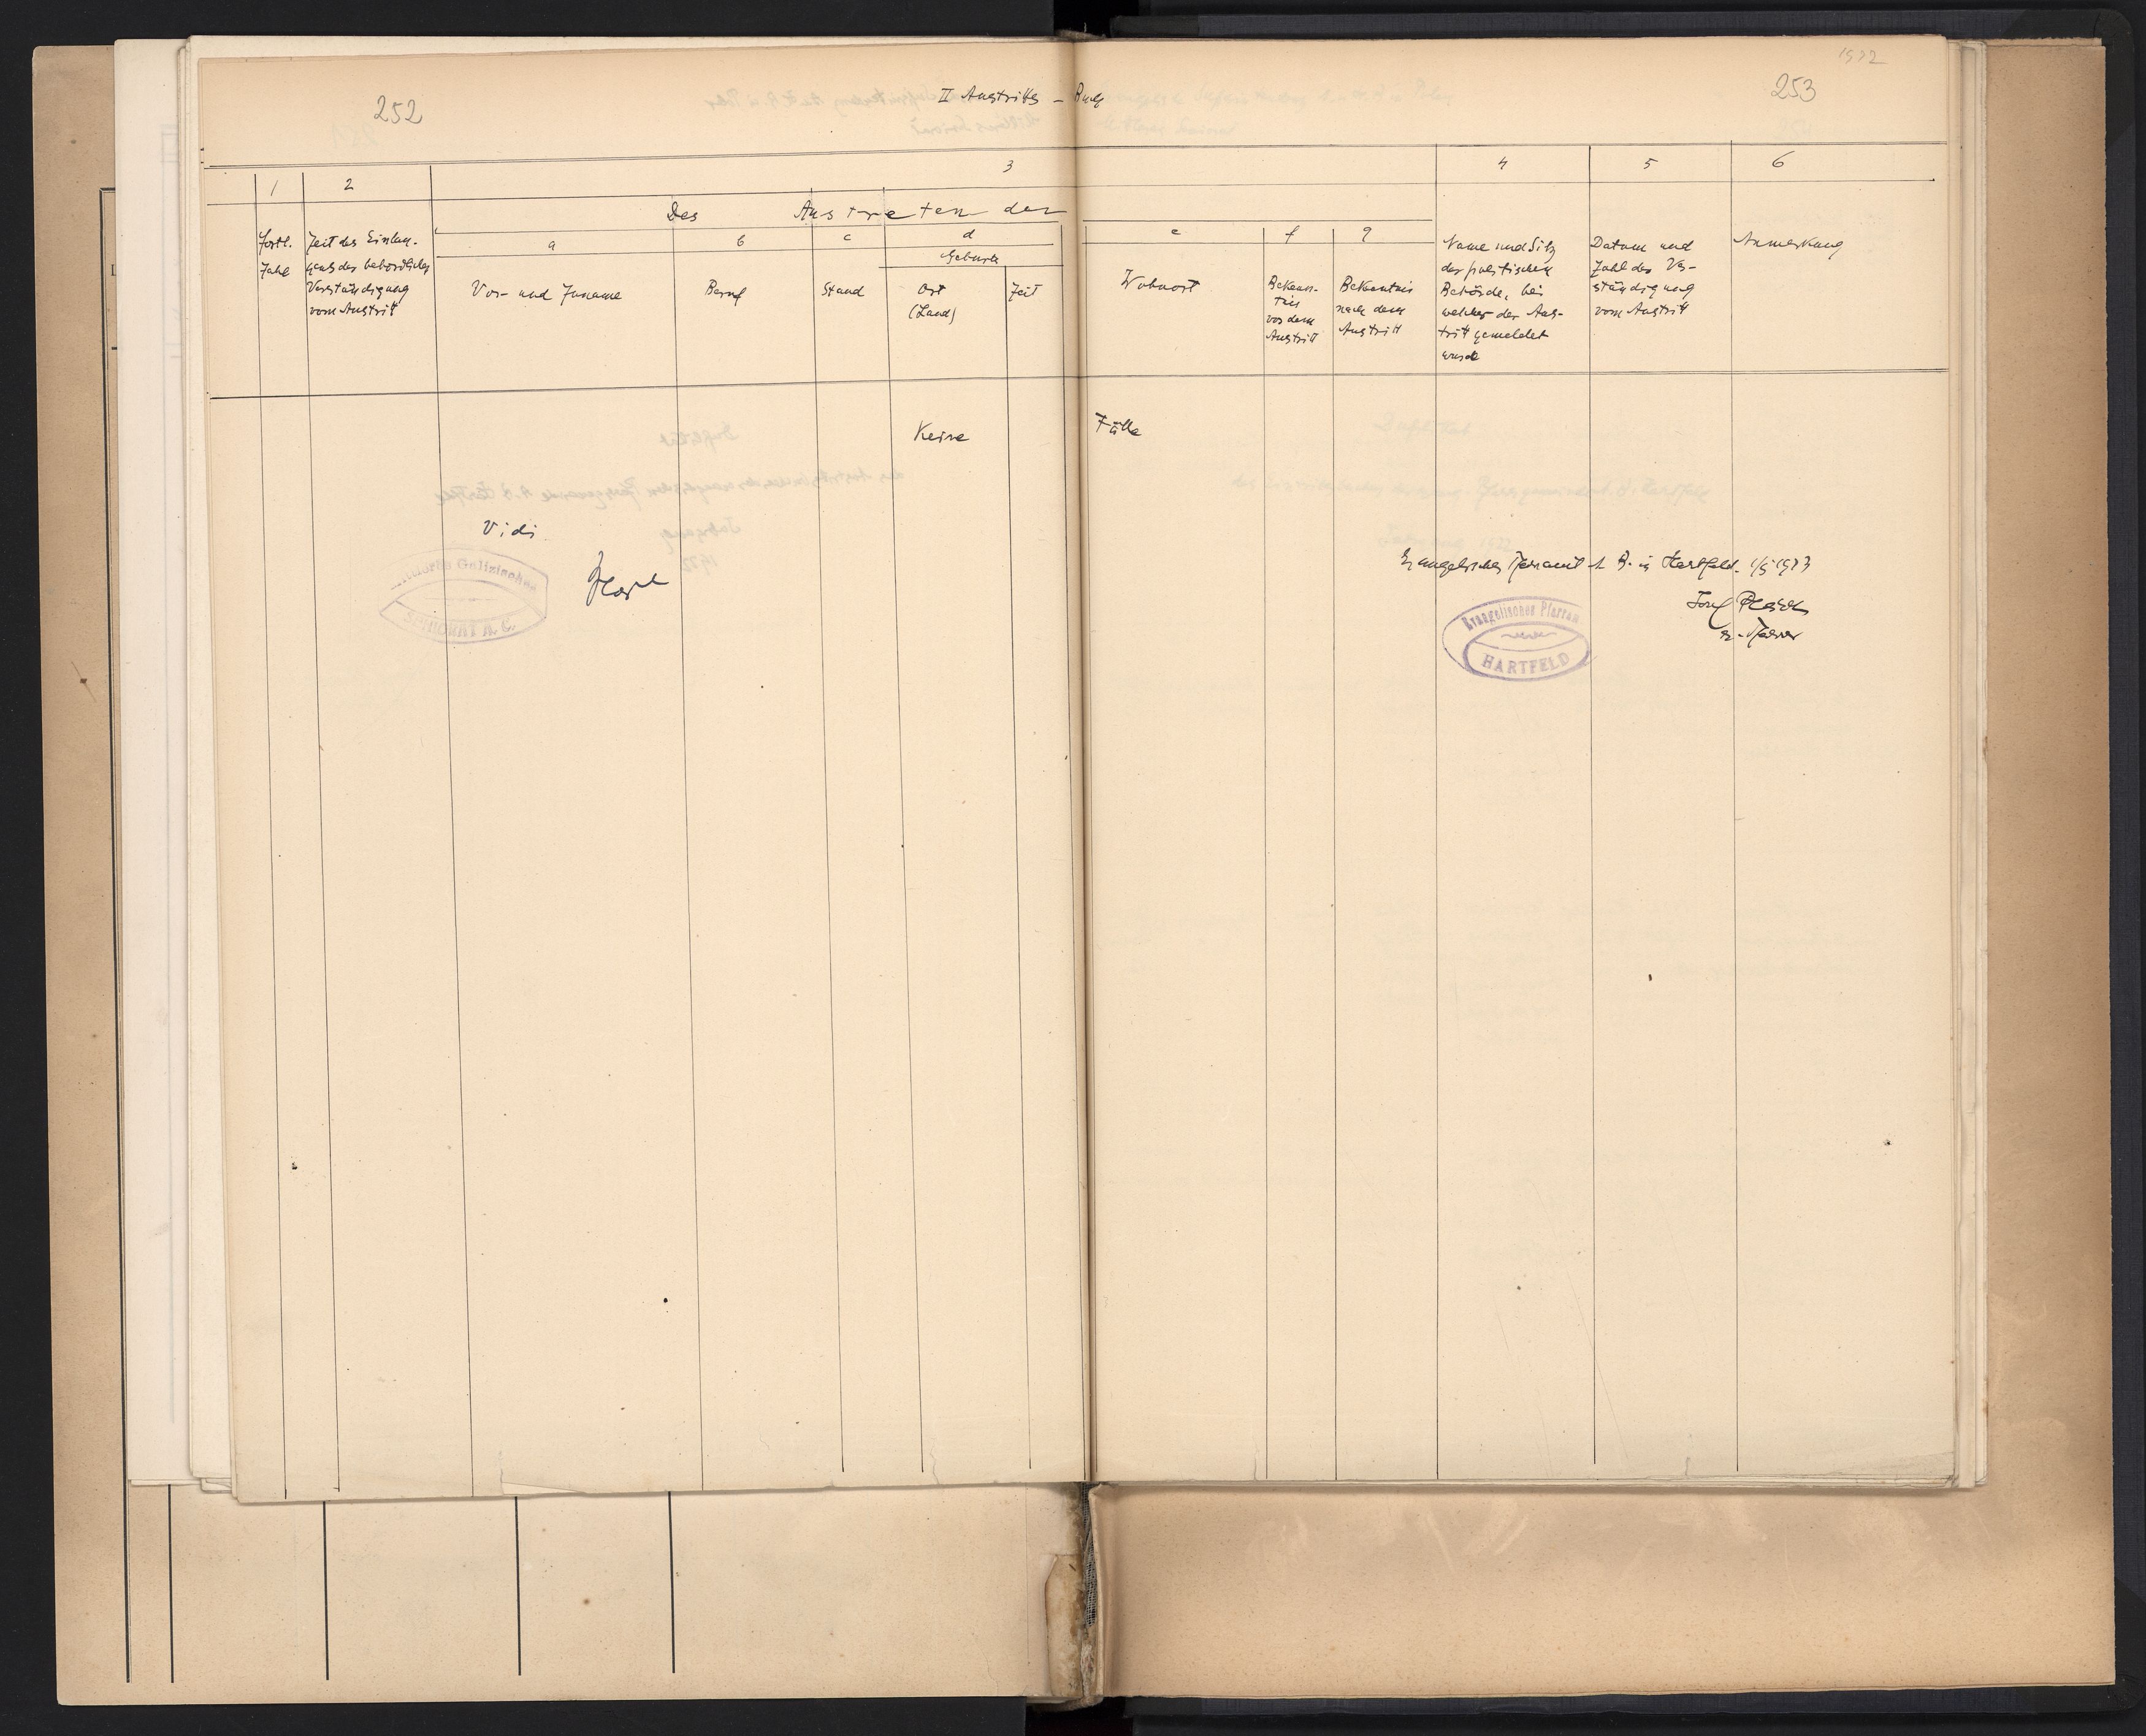 1922
252
II Austritts-Buch
253
1
2
3
4
5
6
Des Austretenden
a
b
c
d
e
f
g
Geburts
Fortl.
Zahl
Zeit des Einlan-
gens der behördlichen
Verständigung
vom Austritt
Vor- und Zuname
Beruf
Stand
Ort
(Land)
Zeit
Wohnort
Bekennt-
tnis
vor dem
Austritt
Bekenntnis
nach dem
Austritt
Name und Sitz
der politischen
Behörde, bei
welcher der Aus-
tritt gemeldet
wurde
Datum und
Zahl der Ver-
ständigung
vom Austritt
Anmerkung
Keine Fälle
Vidi
Galizisches
SENIORAT A. C.
Evangelisches Pfarramt A. B. in Hartfeld. 1/5 1923
Josef
ev. Pfarrer
Evangelisches Pfarramt
HARTFELD